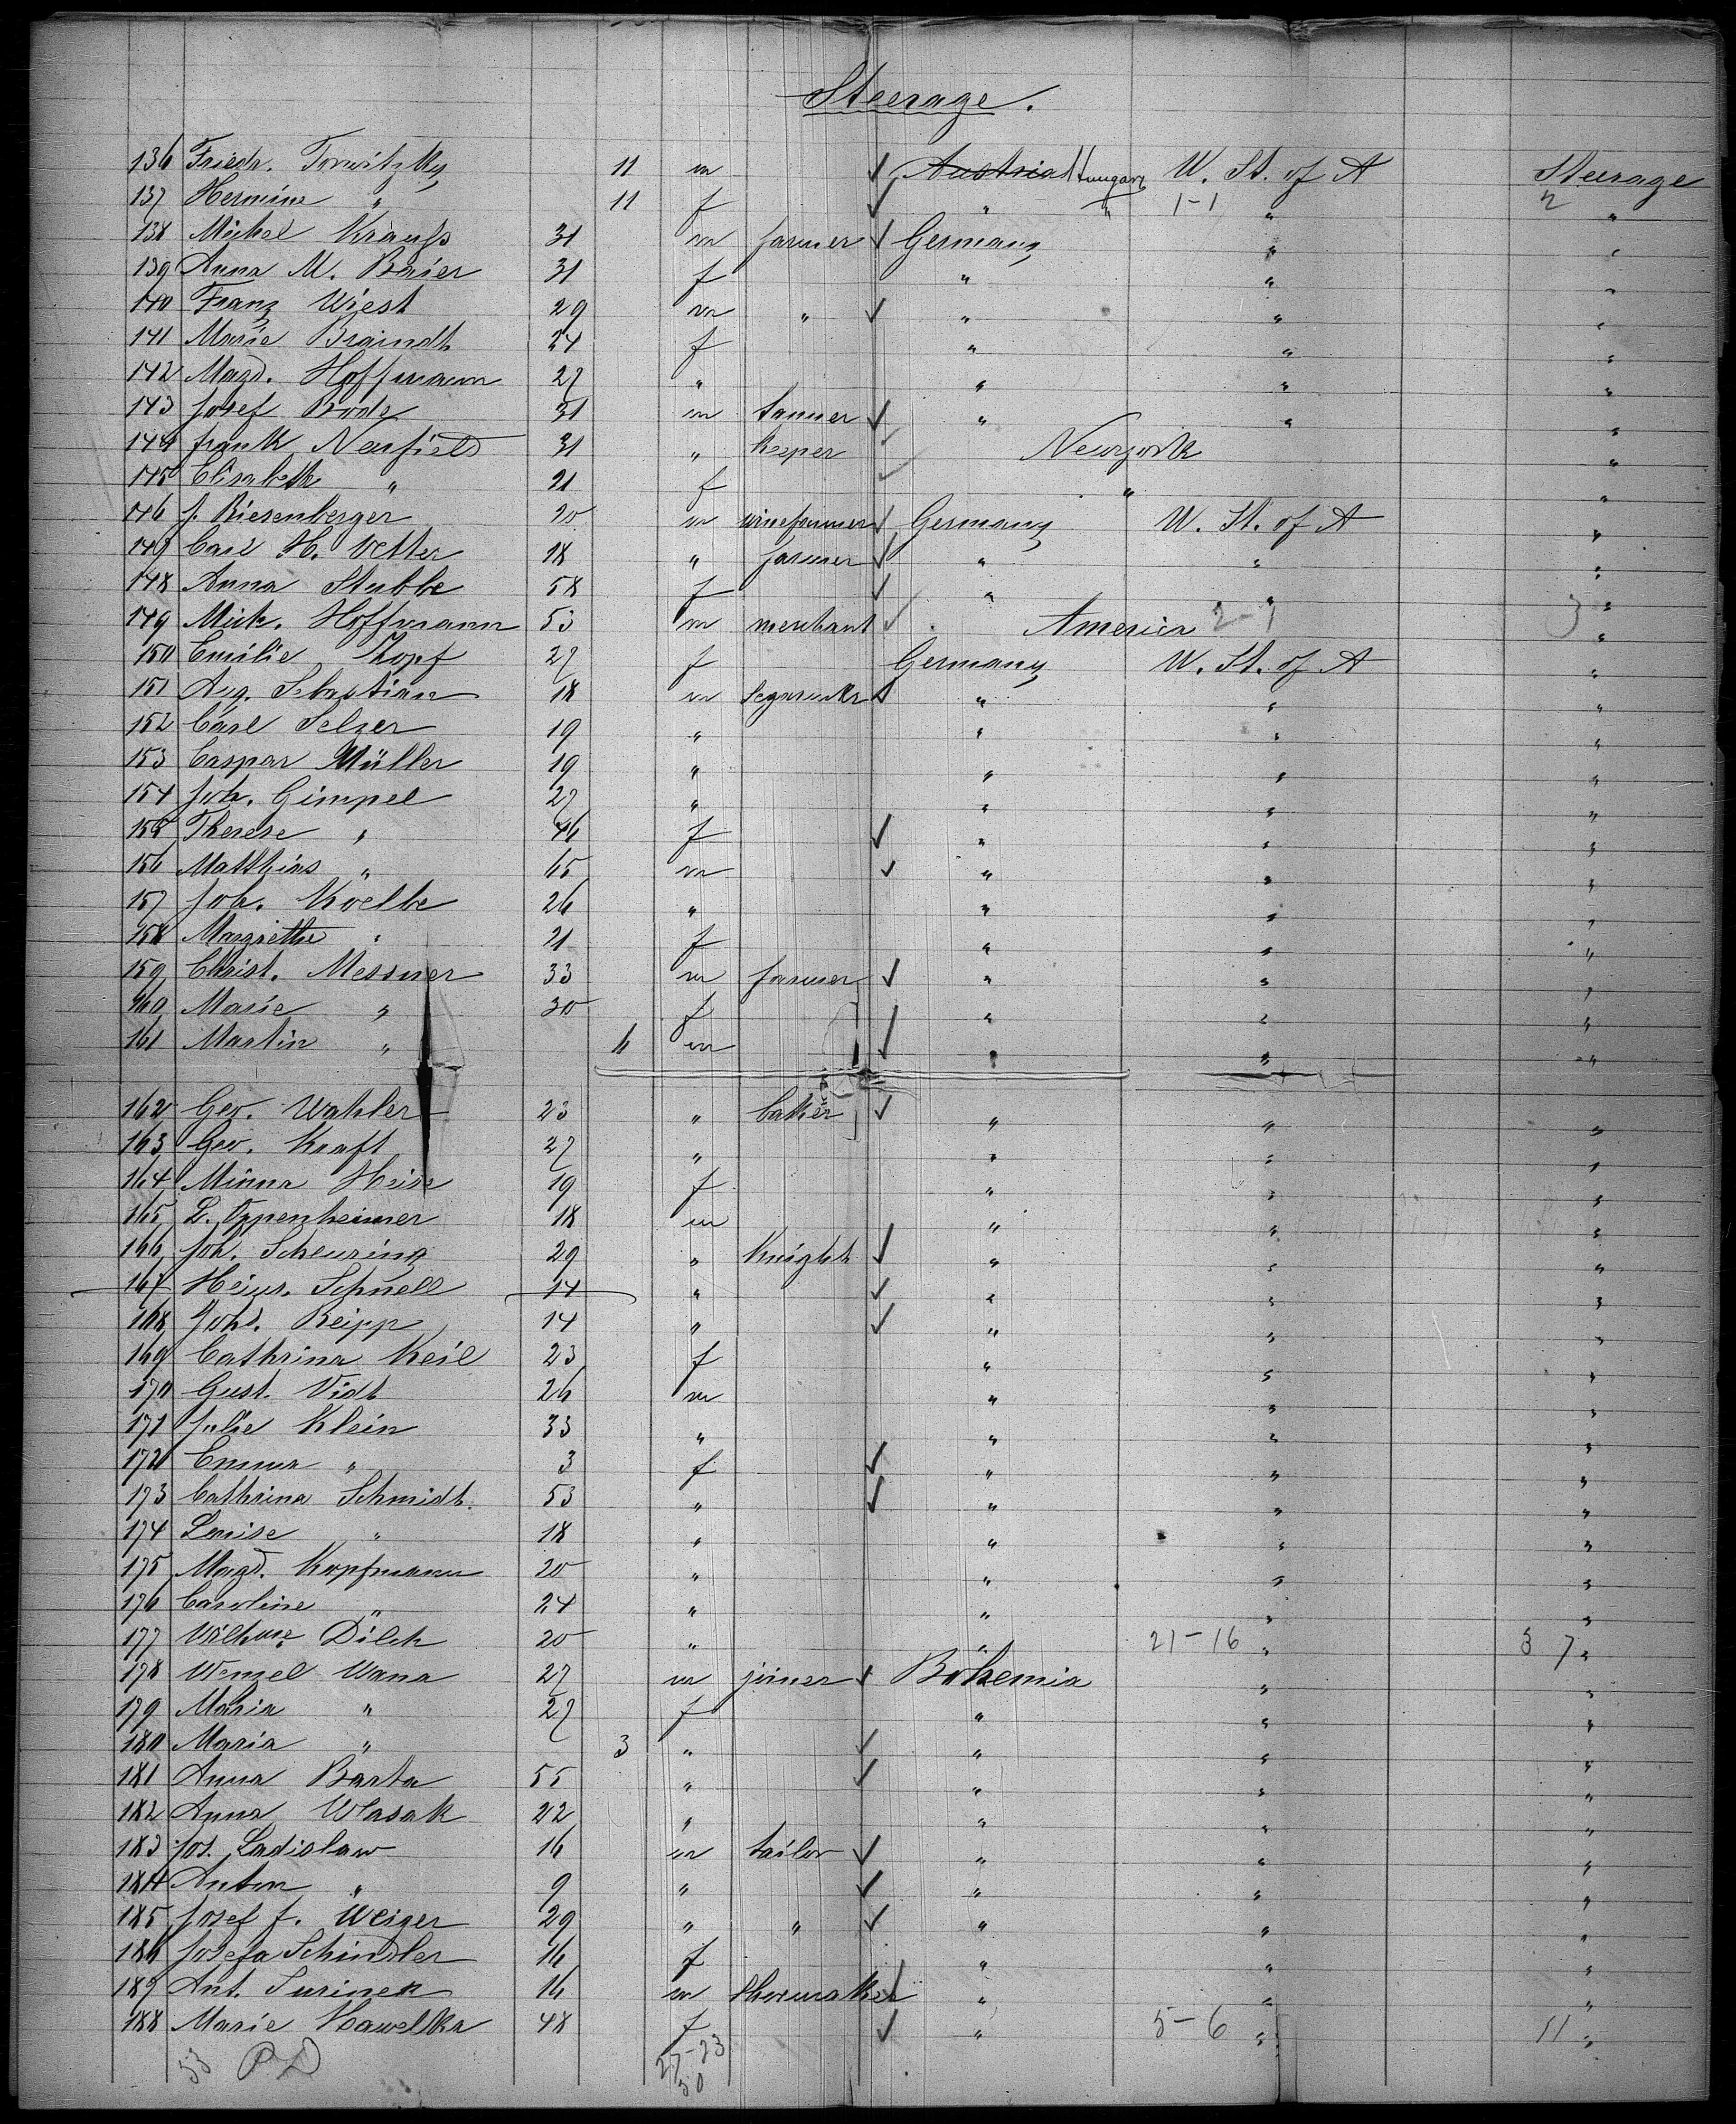 Steerage.
136 Friedr. Torwitzky 11 m ✓ Austria Hungary U. St. of A Steerage
137 Hermine " 11 f ✓ " " 1-1 " 2 "
138 Michel Krauss 31 m farmer ✓ Germany " "
139 Anna M. Baier 31 f " " "
140 Franz Wiest 29 m " ✓ " " "
141 Marie Braindt 24 f " " "
142 Magd. Hoffmann 27 " " " "
143 Josef Bode 31 m tanner ✓ " " "
144 Frank Neufield 31 " keeper ✓ Newyork "
145 Elisabeth " 21 f ✓ " "
146 J. Riesenberger 20 m winefarmer ✓ Germany U. St. of A "
147 Carl H. Vetter 18 " farmer ✓ " " "
148 Anna Stubbe 58 f ✓ " " "
149 Mich. Hoffmann 53 m merchant ✓ America 2-1 3 "
150 Emilie Kopf 27 f Germany U. St. of A "
151 Aug. Sebastian 18 m Segarmkr ✓ " " "
152 Carl Selzer 19 " " " "
153 Caspar Müller 19 " " " "
154 Joh. Gimpel 27 " " " "
155 Therese " 46 f ✓ " " "
156 Matthias " 65 m ✓ " " "
157 Joh. Koelbe 26 " " " "
158 Margrethe " 21 f " " "
159 Christ. Messner 33 m farmer ✓ " " "
160 Marie " 30 f " " "
161 Martin " m ✓ " " "
162 Geo. Wahler 23 " baker ✓ " " "
163 Geo. Kraft 27 " " " "
164 Minna Heise 19 f " " "
165 L. Oppenheimer 18 m " " "
166 Joh. Scheuring 29 " Knight ✓ " " "
167 Heinr. Schnell 14 " ✓ " " "
168 Johs. Reipp 14 " ✓ " " "
169 Cathrina Keil 23 f " " "
170 Gust. Vidt 26 m " " "
171 Julie Klein 33 " " " "
172 Emma " 3 f ✓ " " "
173 Cathrina Schmidt 53 " ✓ " " "
174 Louise " 18 " " " "
175 Magd. Kopfmann 20 " " " "
176 Caroline " 24 " " " "
177 Dilch 20 " " 21-16 " 37 "
178 Wenzel Wana 27 m joiner ✓ Bohemia " "
179 Maria " 27 f " " "
180 Maria " 3 " ✓ " " "
181 Anna Barta 55 " ✓ " " "
182 Anna Wlasak 22 " " " "
183 Jos. Ladislaw 16 m tailor ✓ " " "
184 Anton " 9 " ✓ " " "
185 Josef J. Weiger 29 " " ✓ " " "
186 Josefa Schindler 16 f " " "
187 Ant. Surinek 16 m shoemaker ✓ " " "
188 Marie Hawelka 48 f ✓ " 5-6 " 11 "
53 27-23
50